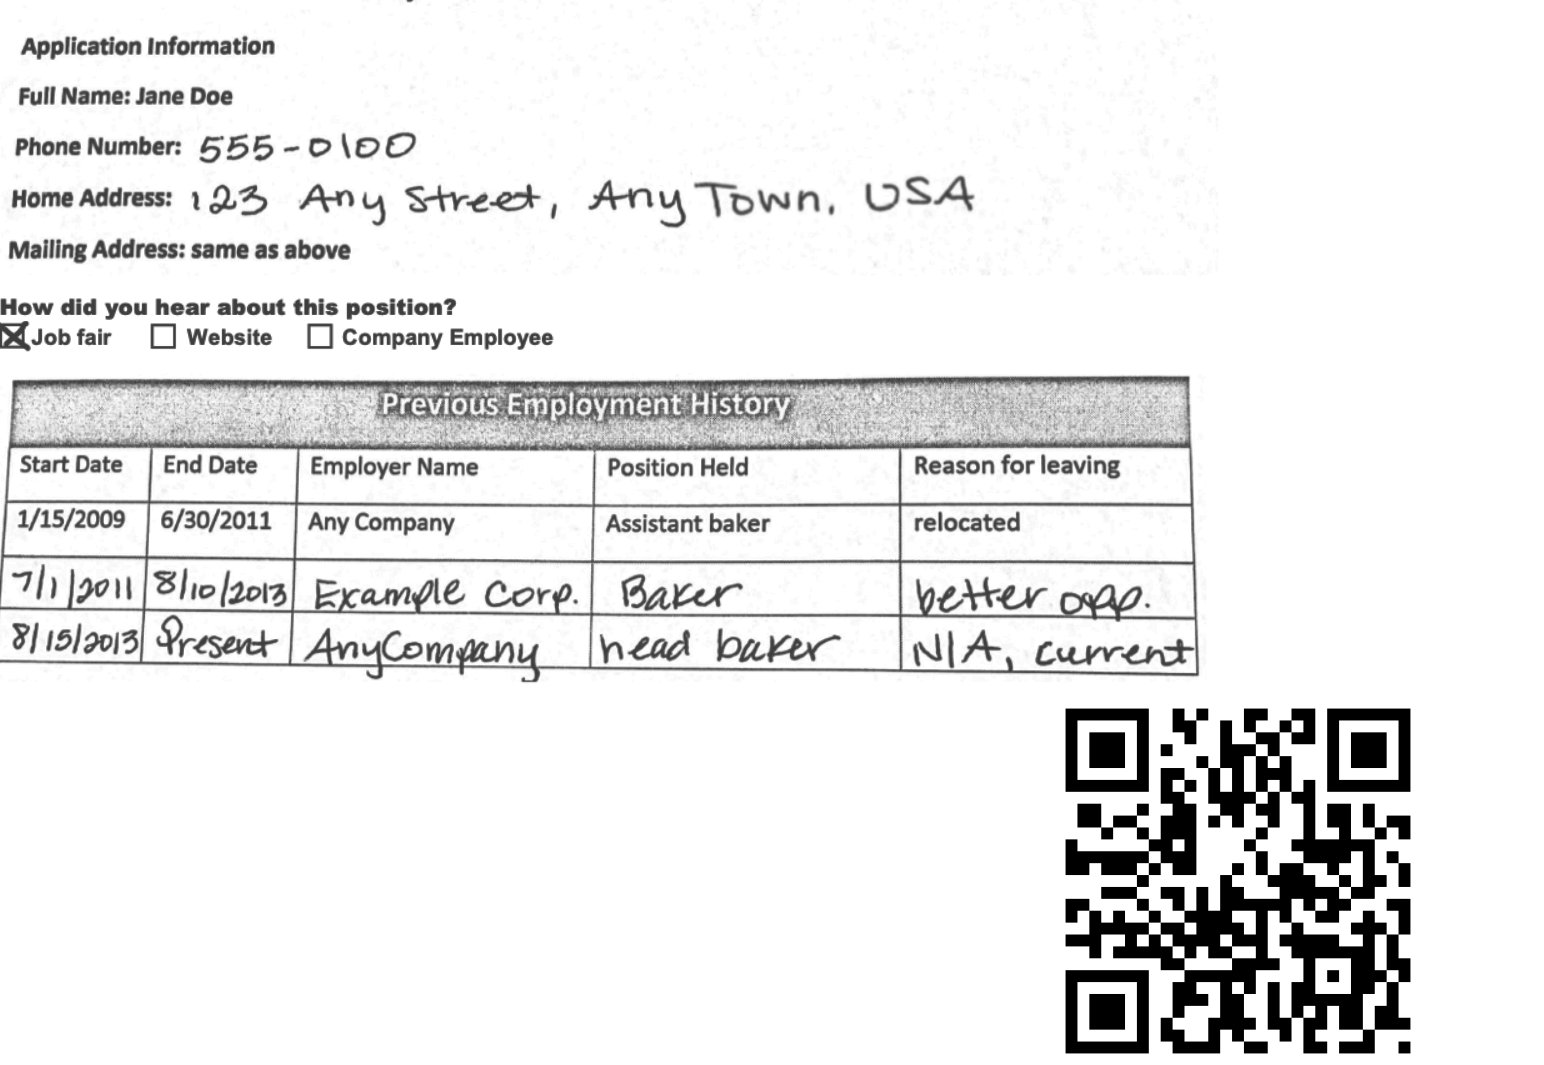 Application Information
Full Name: Jane Doe
Phone Number: 555-0100
Home Address: 123 Any Street, Any Town, USA
Mailing Address: same as above
How did you hear about this position?
Job fair Website Company Employee
Previous Employment History
Start Date End Date Employer Name Position Held Reason for leaving
1/15/2009 6/30/2011 Any Company Assistant baker relocated
7/1/2011 8/10/2013 Example Corp. Baker better opp.
8/15/2013 Present AnyCompany head baker N/A, current